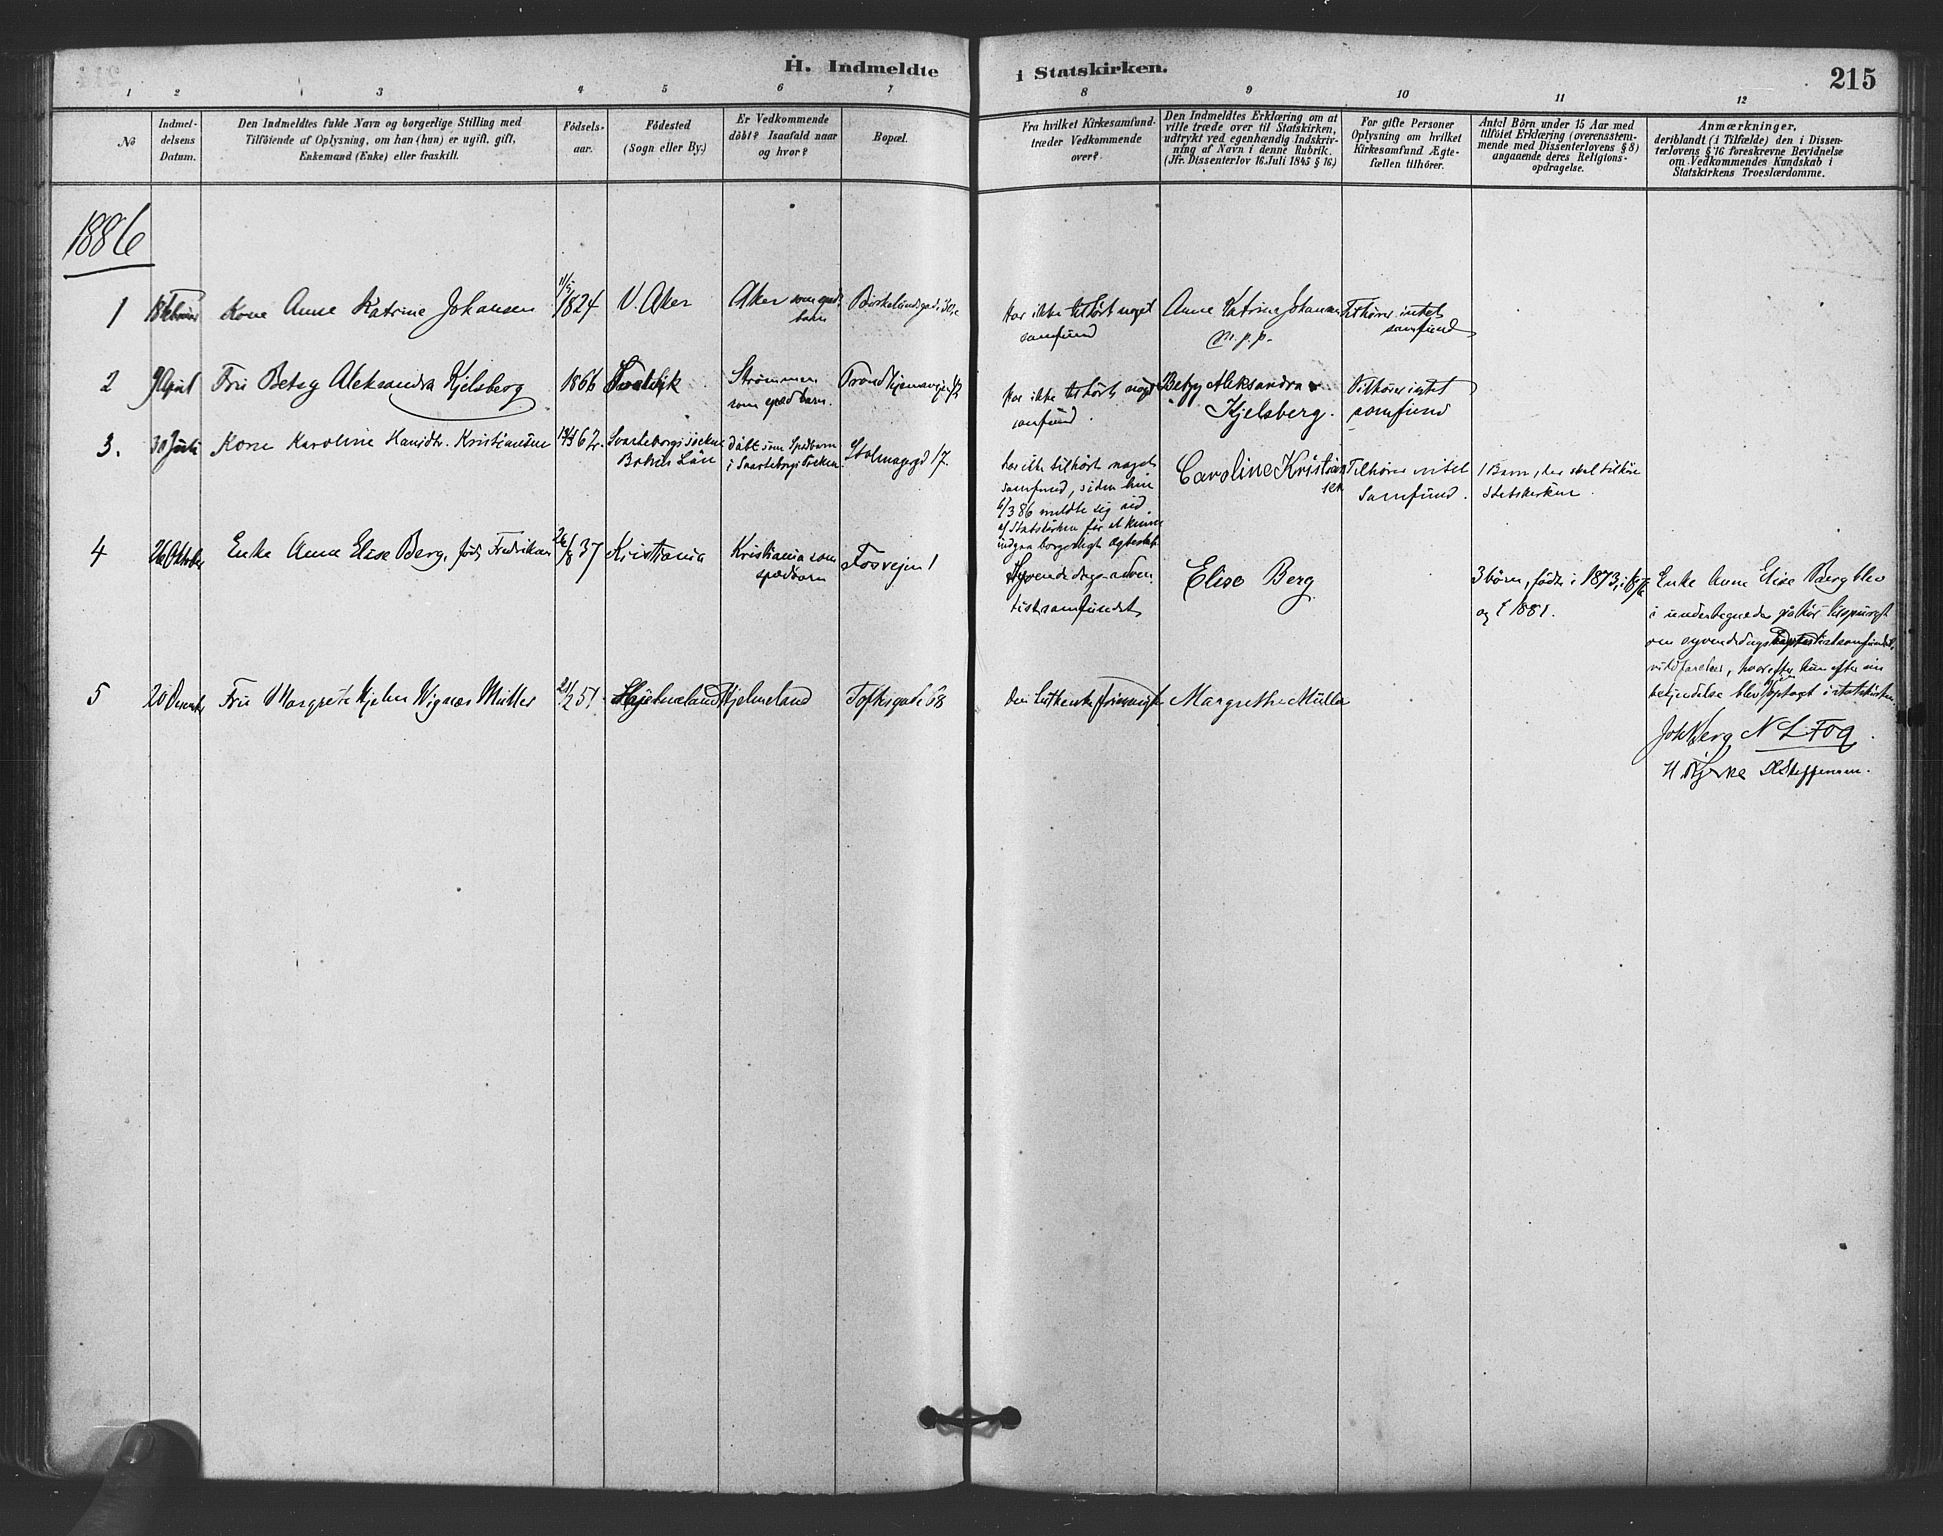 H. Indmeldte i Statskirken.
215
1 2 3 4 5 6 7 8 9 10 11 12
No
Indmel-
delsens
Datum.
Den Indmeldtes fulde Navn og borgerlige Stilling med
Tilføiende af Oplysning, om han (hun) er ugift, gift,
Enkemand (Enke) eller fraskilt.
Fødsels-
aar.
Fødested
(Sogn eller By.)
Er Vedkommende
døbt? Isaafald naar
og hvor?
Bopæl.
Fra hvilket Kirkesamfund
træder Vedkommende
over?
Den Indmeldtes Erklæring om at
ville træde over til Statskirken,
udtrykt ved egenhændig Indskriv-
ning af Navn i denne Rubrik.
(Jfr. Dissenterlov 16. Juli 1845 § 16.)
For gifte Personer
Oplysning om hvilket
Kirkesamfund Ægte-
fællen tilhører.
Antal Børn under 15 Aar med
tilføiet Erklæring (overensstem-
mende med Dissenterlovens § 8)
angaaende deres Religions-
opdragelse.
Anmærkninger,
deriblandt (i Tilfælde) den i Dissen-
terlovens § 16 foreskrevne Bevidnelse
om Vedkommendes Kundskab i
Statskirkens Troeslærdomme.
1886
1
Kone Anne Katrine Johansen
1824
V. Aker
Aker som spæd-
barn
Har ikke tilhørt noget
samfund
Anne Katrine Johansen
m. p. p.
Tilhører intet
samfund
2
9 April
Fru Betsy Aleksandra Kjelsberg
1866
Strømmen
som spædbarn.
Har ikke tilhørt noget
samfund.
Betzy Aleksandra
Kjelsberg.
Tilhører intet
samfund
3.
30 Juli
Kone Karoline Kristiansen
62
døbt som Spædbarn
i Svarteborgs Socken.
Har ikke tilhørt noget
samfund, siden hun
6/3 86 meldte sig ud
af Statskirken for at kunne
indgaa borgerligt ægteskab
Caroline Kristian
sen
Tilhører intet
Samfund.
1 Barn, der skal tilhøre
Statskirken.
4
26 Oktober
Enke Anne Elise Berg, født Fredriksen
26/8 37
Kristiania
Kristiania som
spædbarn
Fossvejen 1
Syvendedagsadven
tistsamfundet
Elise Berg
3 børn, født i 1873, i
og i 1881.
Enke Anne Elise Berg blev
i undertegnedes påhør udspurgt
om syvendedags
vildfarelser, hvorefter hun efter sin
bekjendelse blev optaget i statskirken.
N L Fog
H Bjerke Steffensen.
5
20
Fru Margrete Hjelm Wignæs Müller
51
Hjelmeland
Hjelmeland
Toftesgade 68
Den lutherske frimenighed
Margrethe Müller